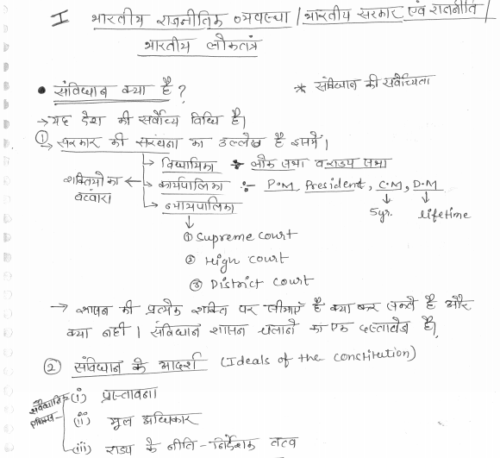 I भारतीय राजनीतिक व्यवस्था / भारतीय सरकार एवं राजनीति /
भारतीय लोकतंत्र
• संविधान क्या है ?
* संविधान की सर्वोच्चता
→ यह देश की सर्वोच्च विधि है।
① → सरकार की संरचना का उल्लेख है इसमें।
शक्तियों का बंटवारा
→ विधायिका :- लोक सभा व राज्य सभा
→ कार्यपालिका :- P.M, President, C.M, D.M
5yr. lifetime
→ न्यायपालिका
① Supreme court
② High court
③ District court
→ शासन की प्रत्येक शक्ति पर सीमाएं हैं क्या कर सकते हैं और
क्या नहीं। संविधान शासन चलाने का एक दस्तावेज है।
② संविधान के आदर्श (Ideals of the conctitution)
(i) प्रस्तावना
(ii) मूल अधिकार
(iii) राज्य के नीति-निर्देशक तत्व